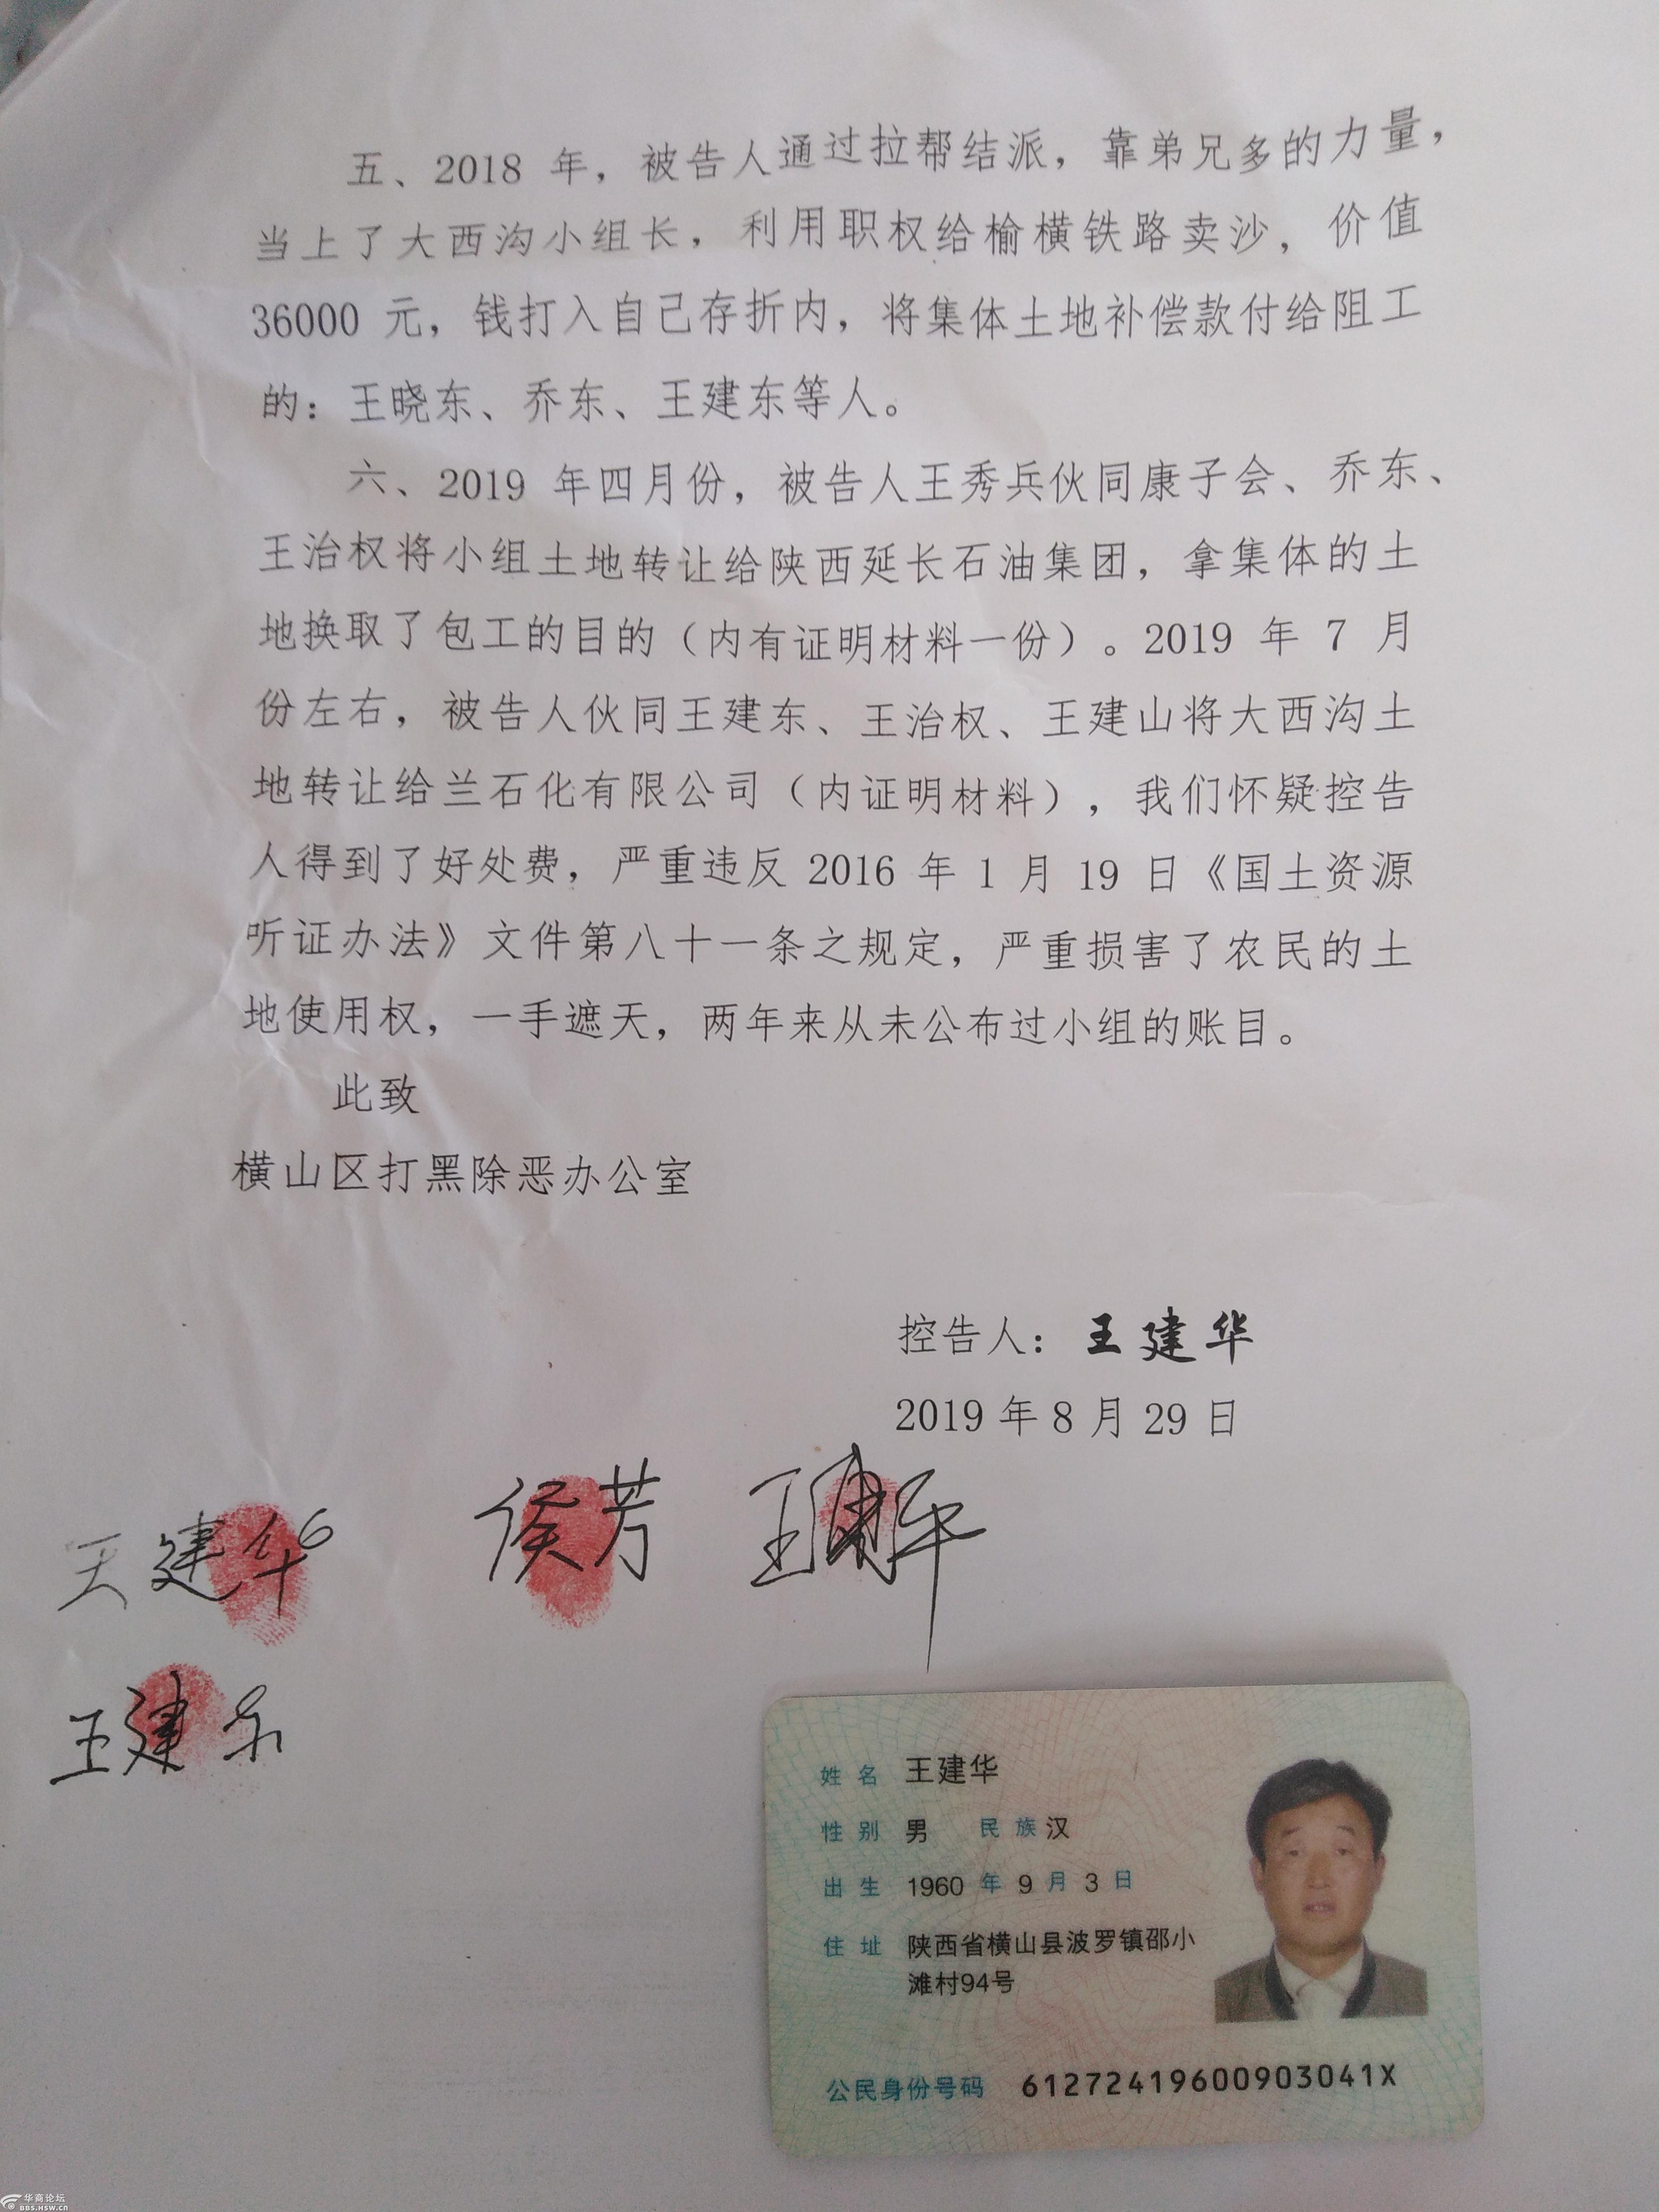 五、2018 年，被告人通过拉帮结派，靠弟兄多的力量，
当上了大西沟小组长，利用职权给榆横铁路卖沙，价值
36000 元，钱打入自己存折内，将集体土地补偿款付给阻工
的：王晓东、乔东、王建东等人。
六、2019 年四月份，被告人王秀兵伙同康子会、乔东、
王治权将小组土地转让给陕西延长石油集团，拿集体的土
地换取了包工的目的（内有证明材料一份）。2019 年 7 月
份左右，被告人伙同王建东、王治权、王建山将大西沟土
地转让给兰石化有限公司（内证明材料），我们怀疑控告
人得到了好处费，严重违反 2016 年 1 月 19 日《国土资源
听证办法》文件第八十一条之规定，严重损害了农民的土
地使用权，一手遮天，两年来从未公布过小组的账目。
此致
横山区打黑除恶办公室
控告人：王建华
2019 年 8 月 29 日
王建华 侯芳
王建
姓名 王建华
性别 男 民族 汉
出生 1960 年 9 月 3 日
住址 陕西省横山县波罗镇邵小
滩村94号
公民身份号码 61272419600903041X
华商论坛
BBS.HSW.CN